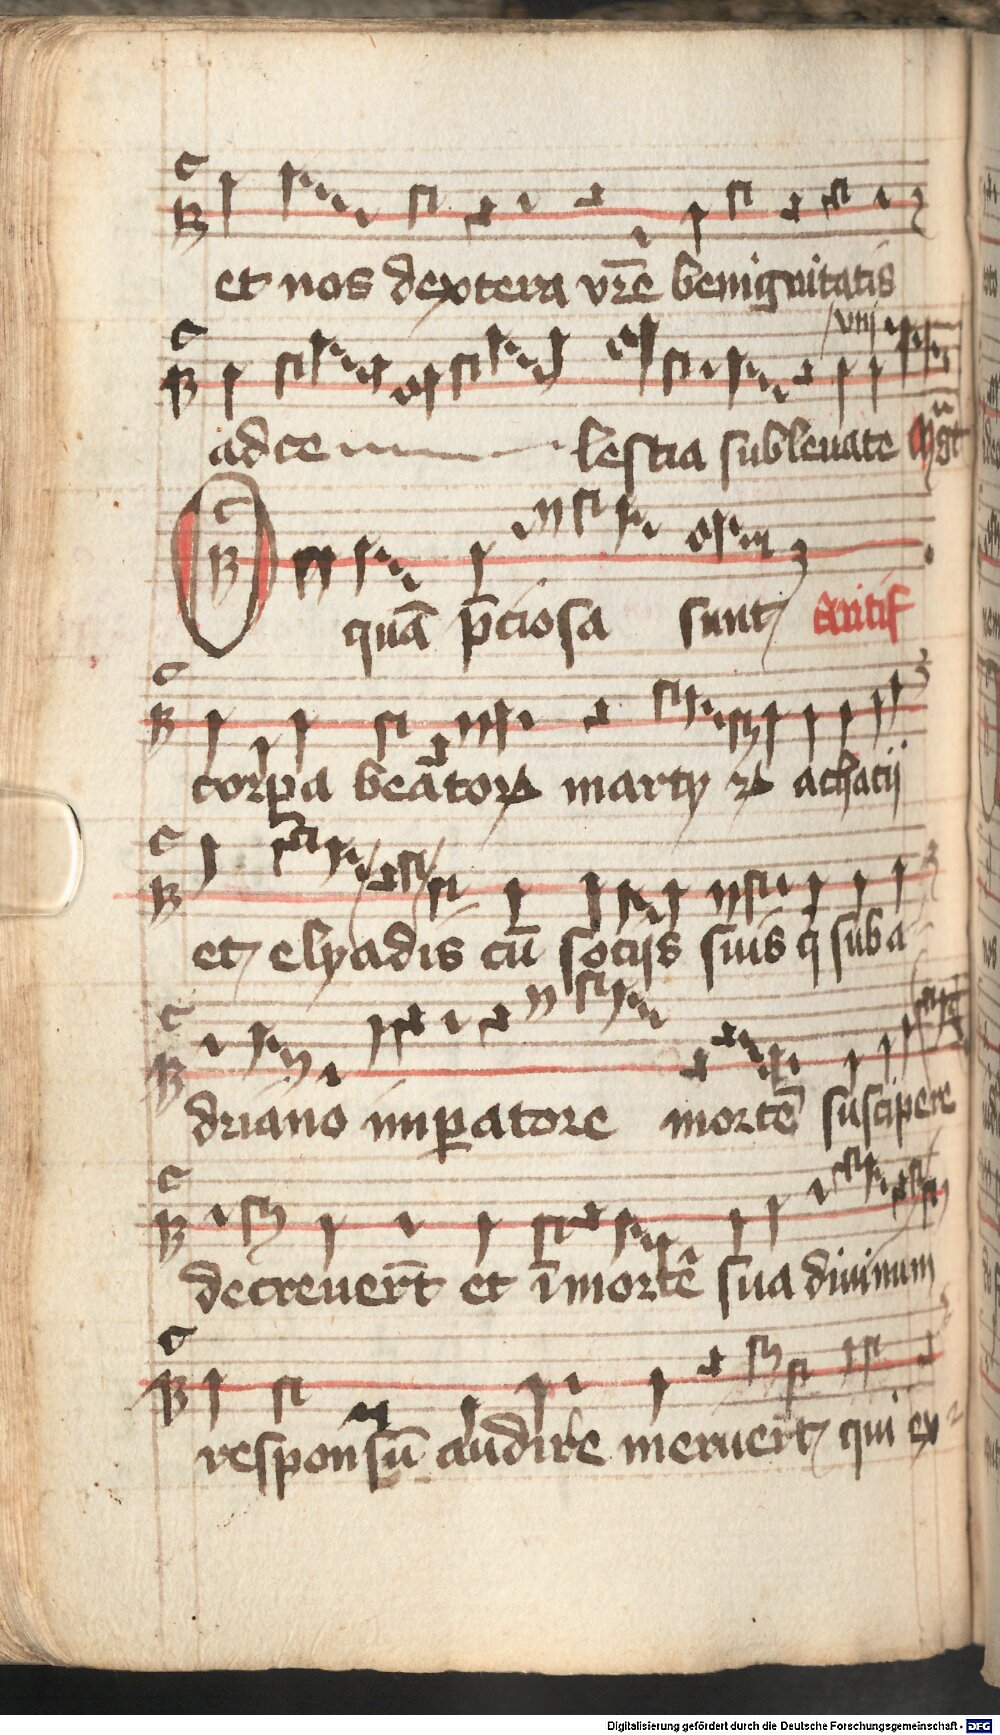 et nos dextera vr̄e benignitatis
viij
ad ce lestia subleuate
O quā p̄ciosa sunt Antif
corꝑa beātorꝝ martyꝝ achacij
et elyadis cū socijs suis q̄ sub a
driano imꝑatore mortē suscipere
decreuer̄t et ī mortē sua diuinum
responsū audire meruer̄t qui ex
Digitalisierung gefördert durch die Deutsche Forschungsgemeinschaft - DFG